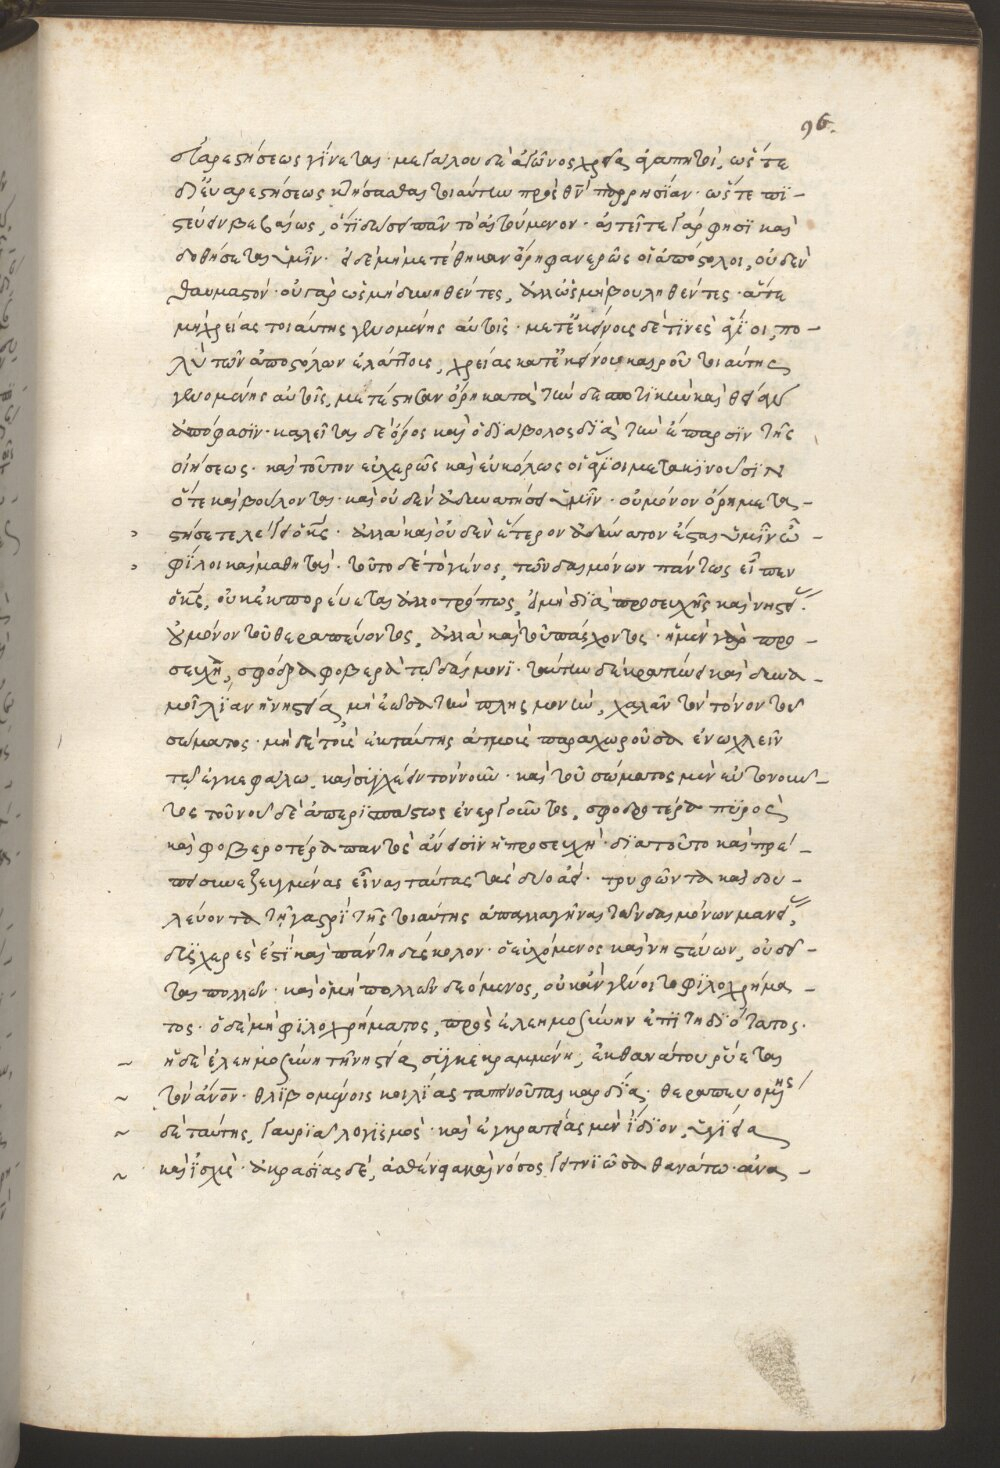 96.
σταρεστήσεως γίνεται· μεγάλου δὲ ἀγῶνος χρεία ἀγαπητοί, ὥστε
δι' εὐαρεστήσεως κτήσασθαι τοιαύτην πρὸς θν̅ παρρησίαν· ὥστε πι-
στεύειν βεβαίως, ὅτι δώσει πᾶν τὸ αἰτούμενον· αἰτεῖτε γάρ φησι καὶ
δοθήσεται ὑμῖν· εἰ δὲ μὴ μετέθηκαν ὄρη φανερῶς οἱ ἀπόστολοι, οὐδὲν
θαυμαστόν· οὐ γὰρ ὡς μὴ δυνηθέντες, ἀλλ' ὡς μὴ βουληθέντες· ἅτε
μὴ χρείας τοιαύτης γενομένης αὐτοῖς· μετ' ἐκείνους δέ τινες ἅγιοι, πο-
λὺ τῶν ἀποστόλων ἐλάττους, χρείας κατ' ἐκείνου καιροῦ τοιαύτης
γενομένης αὐτοῖς, μετέστησαν ὄρη κατὰ τὴν δεσποτικὴν καὶ θείαν
ἀπόφασιν· καλεῖται δὲ ὄρος καὶ ὁ διάβολος διὰ τὴν ἔπαρσιν τῆς
οἰήσεως· καὶ τοῦτον εὐχερῶς καὶ εὐκόλως οἱ ἅγιοι μετακινοῦσιν
ὅτε καὶ βούλονται· καὶ οὐδὲν ἀδυνατήσει ὑμῖν· οὐ μόνον ὄρη μετα-
στήσετε λέγει ὁ κς̅· ἀλλὰ καὶ οὐδὲν ἕτερον ἀδύνατον ἔσται ὑμῖν ὦ
φίλοι καὶ μαθηταί· τοῦτο δὲ τὸ γένος, τῶν δαιμόνων πάντως εἶπεν
ὁ κς̅, οὐκ ἐκπορεύεται ἀλλοτρόπως, εἰ μὴ διὰ προσευχῆς καὶ νηστεί(ας)·
οὐ μόνον τοῦ θεραπεύοντος, ἀλλὰ καὶ τοῦ πάσχοντος· ἡ μὲν γὰρ προ-
σευχή, σφόδρα φοβερὰ τῷ δαίμονι· ταύτην δὲ κρατύνει καὶ δυνα-
μοῖ λίαν ἡ νηστεία, μὴ ἐῶσα τὴν πλησμονὴν, χαλᾶν τὸν τόνον τοῦ
σώματος· μὴ δὲ τοὺς ἐκ ταύτης ἀτμοὺς παραχωροῦσα ἐνοχλεῖν
τῷ ἐγκεφάλῳ, καὶ συγχέειν τὸν νοῦν· καὶ τοῦ σώματος μὲν εὐτονοῦν-
τος τοῦ νοῦ δὲ ἀπερισπάστως ἐνεργοῦντος, σφοδροτέρα πυρὸς
καὶ φοβεροτέρα παντὸς ἄνεισιν ἡ προσευχή· διὰ τοῦτο καὶ πρέ-
πει συνεζευγμένας εἶναι ταύτας τὰς δύο ἀεί· τρυφῶντα καὶ δου-
λεύοντα τῇ γαστρὶ τῆς τοιαύτης ἀπαλλαγῆναι τῶν δαιμόνων μανεί(ας),
δυσχερὲς ἐστὶ καὶ πάντη δύσκολον· ὁ εὐχόμενος καὶ νηστεύων, οὐ δεῖ-
ται πολλῶν· καὶ ὁ μὴ πολλῶν δεόμενος, οὐκ ἂν γένοιτο φιλοχρήμα-
τος· ὁ δὲ μὴ φιλοχρήματος, πρὸς ἐλεημοσύνην ἐπιτηδιότατος·
ἡ δὲ ἐλεημοσύνη τῇ νηστείᾳ συγκεκραμμένη, ἐκ θανάτου ῥύεται
τὸν ἄνο̅ν· θλιβομένοις κοιλίας ταπεινοῦται καρδία· θεραπευομ(έν)ης
δὲ ταύτης, γαυριᾷ λογισμός· καὶ ἐγκρατείας μὲν ἴδιον, ὑγίεια
καὶ ἰσχὺς· ἀκρασίας δέ, ἀσθένεια καὶ νόσος γειτνιῶσα θανάτῳ· ἀνα-